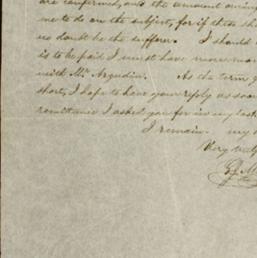 are confirmed, and the amount owing
me to do on the subject, for if these sh
no doubt be the sufferer. I should
is to be paid I must have more mon
with Mr. Argudin. As the term
short, I hope to have your reply as soon
remittance I asked you for in my last
I remain. my
Very truly